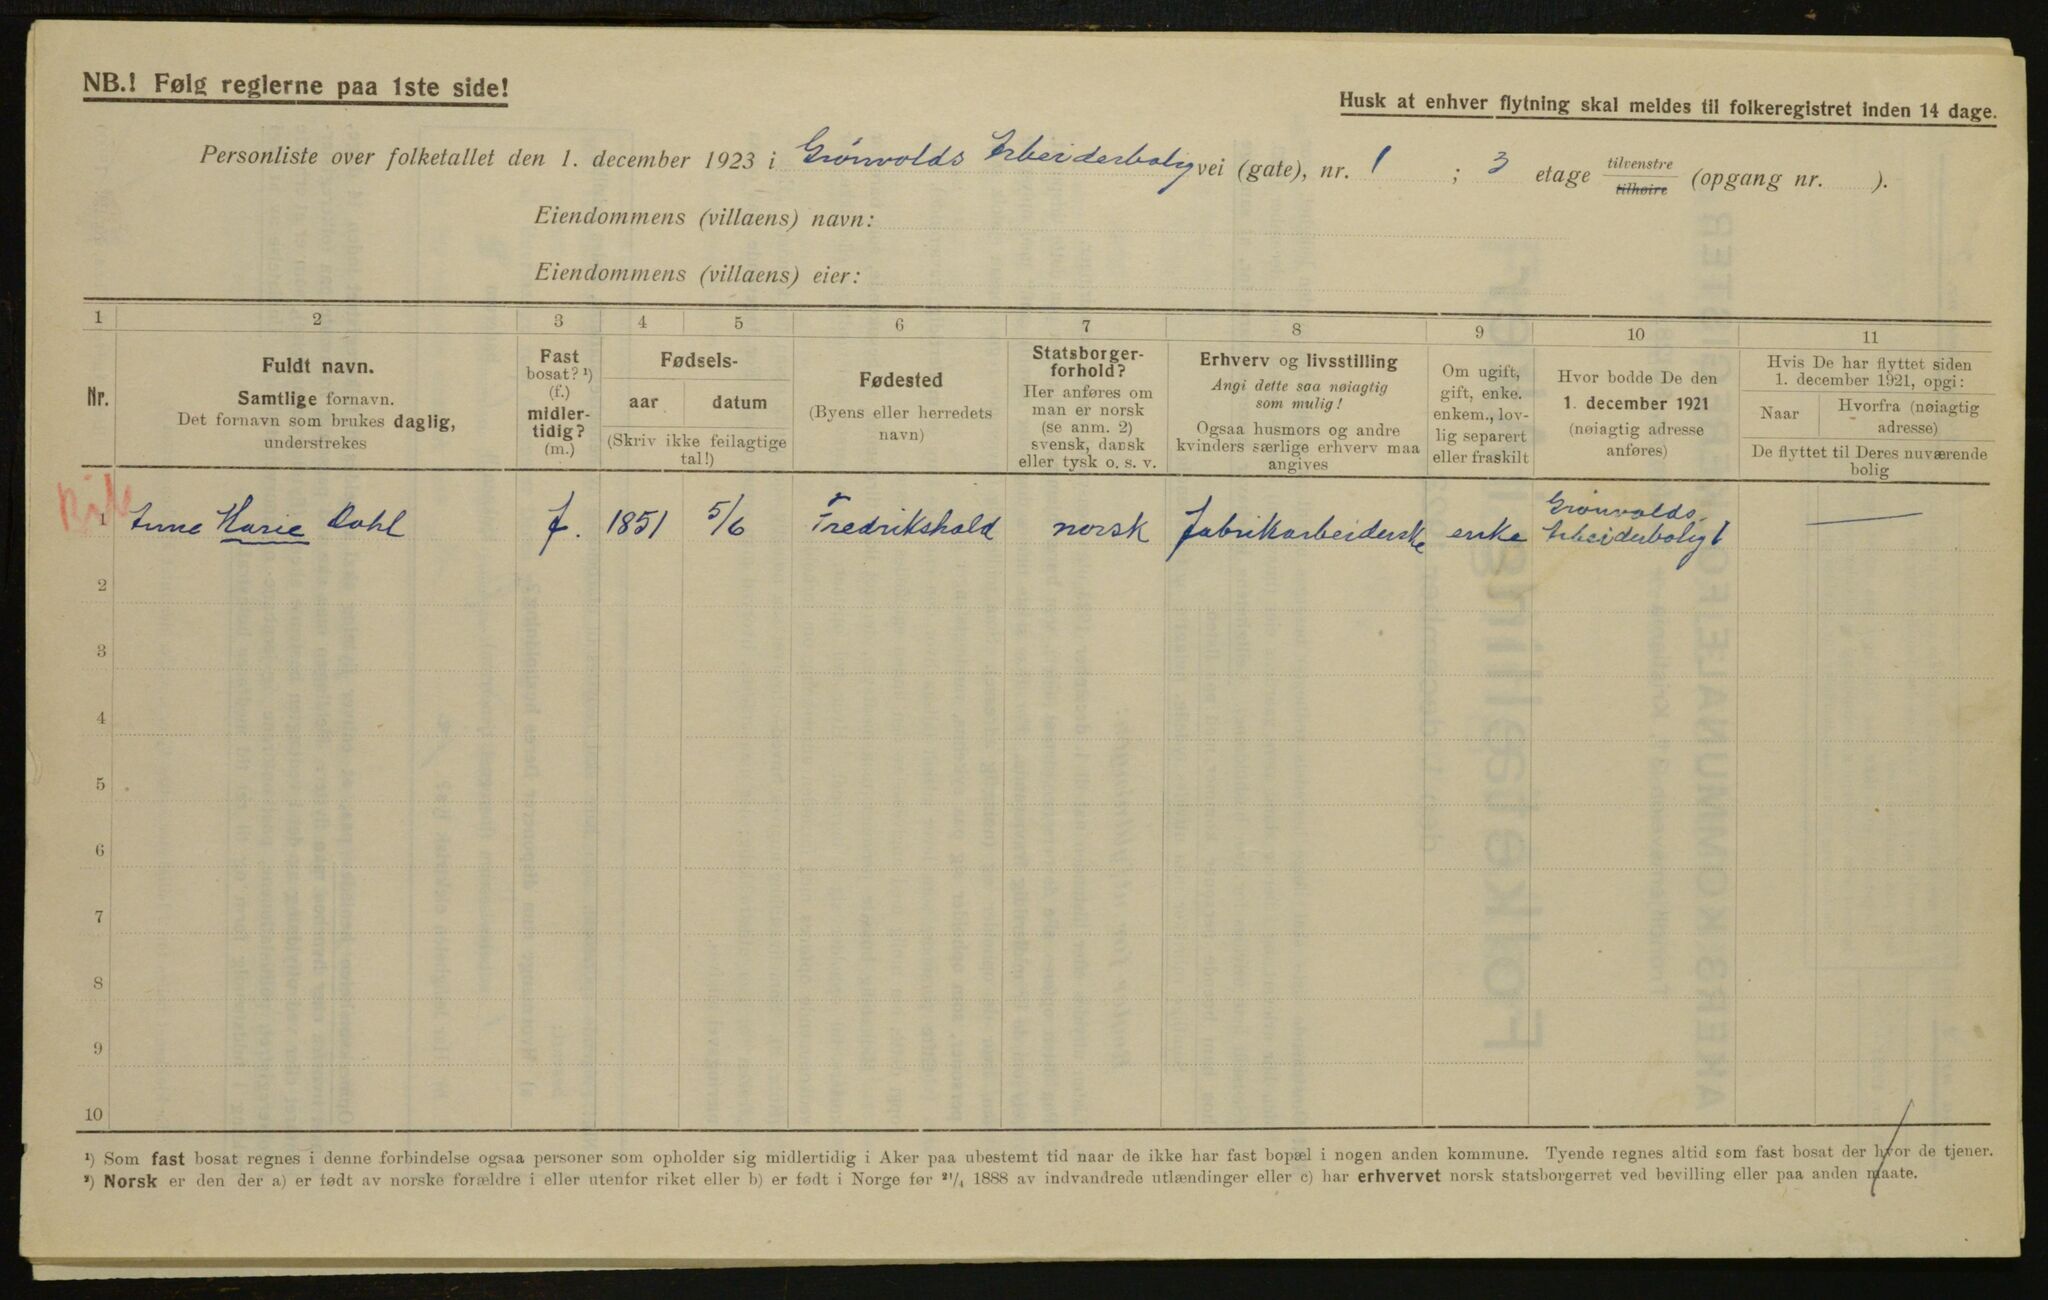 NB.! Følg reglerne paa 1ste side!
Husk at enhver flytning skal meldes til folkeregistret inden 14 dage.
Personliste over folketallet den 1. december 1923 i Grönvolds Arbeiderbolig vei (gate), nr. 1 ; 3 etage tilvenstre tilhøire (opgang nr. ).
Eiendommens (villaens) navn:
Eiendommens (villaens) eier:
1 2 3 4 5 6 7 8 9 10 11
Nr.
Fuldt navn.
Samtlige fornavn.
Det fornavn som brukes daglig,
understrekes
Fast
bosat? ¹)
(f.)
midler-
tidig?
(m.)
Fødsels-
aar datum
(Skriv ikke feilagtige
tal!)
Fødested
(Byens eller herredets
navn)
Statsborger-
forhold?
Her anføres om
man er norsk
(se anm. 2)
svensk, dansk
eller tysk o. s. v.
Erhverv og livsstilling
Angi dette saa nøiagtig
som mulig!
Ogsaa husmors og andre
kvinders særlige erhverv maa
angives
Om ugift,
gift, enke.
enkem., lov-
lig separert
eller fraskilt
Hvor bodde De den
1. december 1921
(nøiagtig adresse
anføres)
Hvis De har flyttet siden
1. december 1921, opgi:
Naar Hvorfra (nøiagtig
adresse)
De flyttet til Deres nuværende
bolig
1 Anne Marie Dahl f. 1851 5/6 Fredrikshald norsk fabrikarbeiderske enke Grönvolds Arbeiderbolig 1 —
2
3
4
5
6
7
8
9
10
¹) Som fast bosat regnes i denne forbindelse ogsaa personer som opholder sig midlertidig i Aker paa ubestemt tid naar de ikke har fast bopæl i nogen anden kommune. Tyende regnes altid som fast bosat der hvor de tjener.
²) Norsk er den der a) er født av norske forældre i eller utenfor riket eller b) er født i Norge før ²¹/₄ 1888 av indvandrede utlændinger eller c) har erhvervet norsk statsborgerret ved bevilling eller paa anden maate.